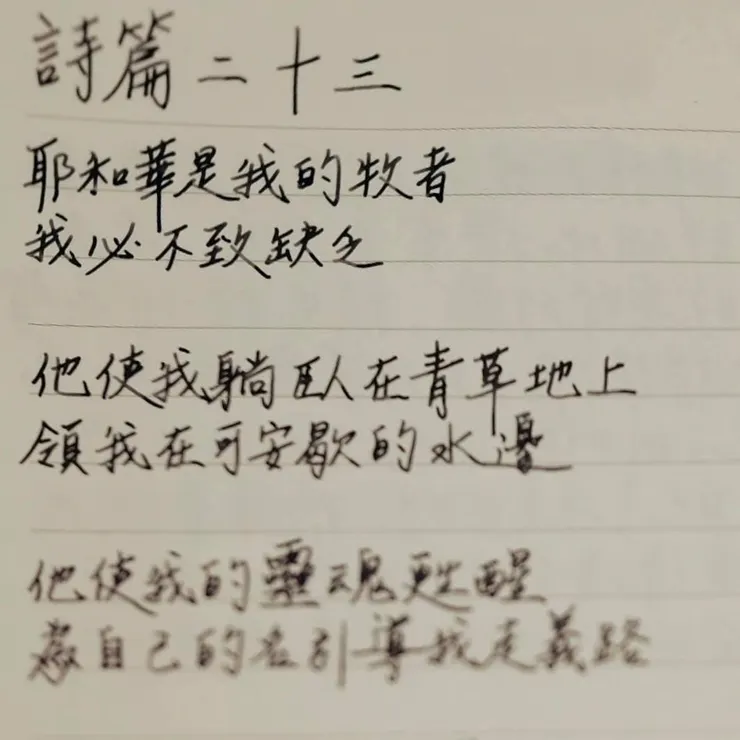 詩篇二十三
耶和華是我的牧者
我必不致缺乏
他使我躺臥在青草地上
領我在可安歇的水邊
他使我的靈魂甦醒
為自己的名引導我走義路